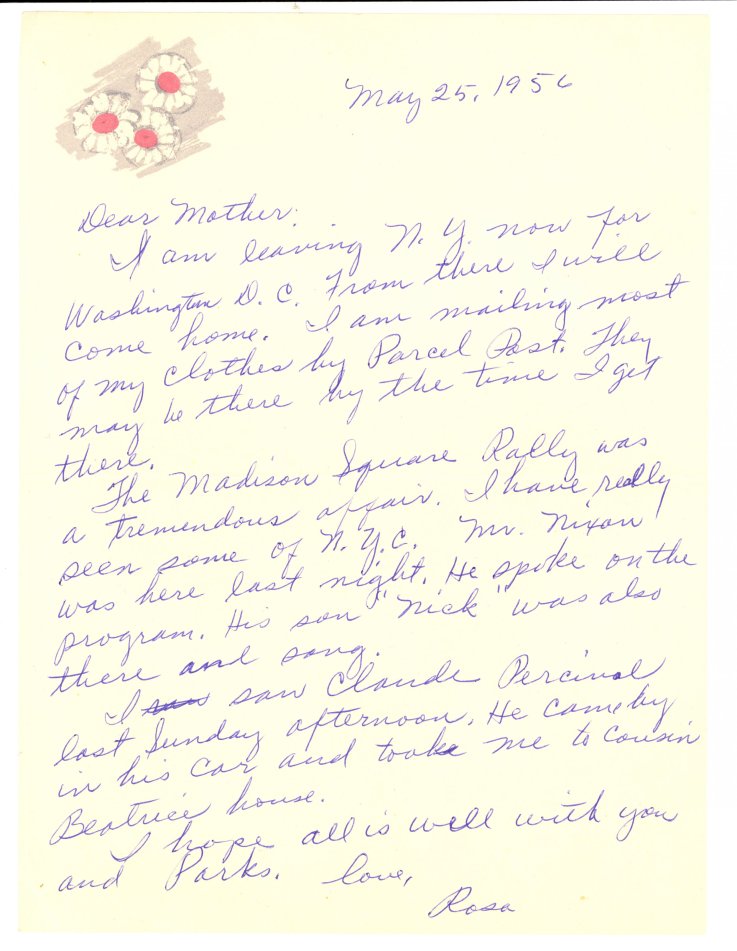 May 25, 1956
Dear Mother:
I am leaving N. Y. now for
Washington D. C. From there I will
come home. I am mailing most
of my clothes by Parcel Post. They
may be there by the time I get
there.
The Madison Square Rally was
a tremendous affair. I have really
seen some of N. Y. C. Mr. Nixon
was here last night. He spoke on the
program. His son "Nick" was also
there and sang.
I saw Claude Percival
last Sunday afternoon. He came by
in his car and took me to Cousin
Beatrice house.
I hope all is well with you
and Parks. Love,
Rosa